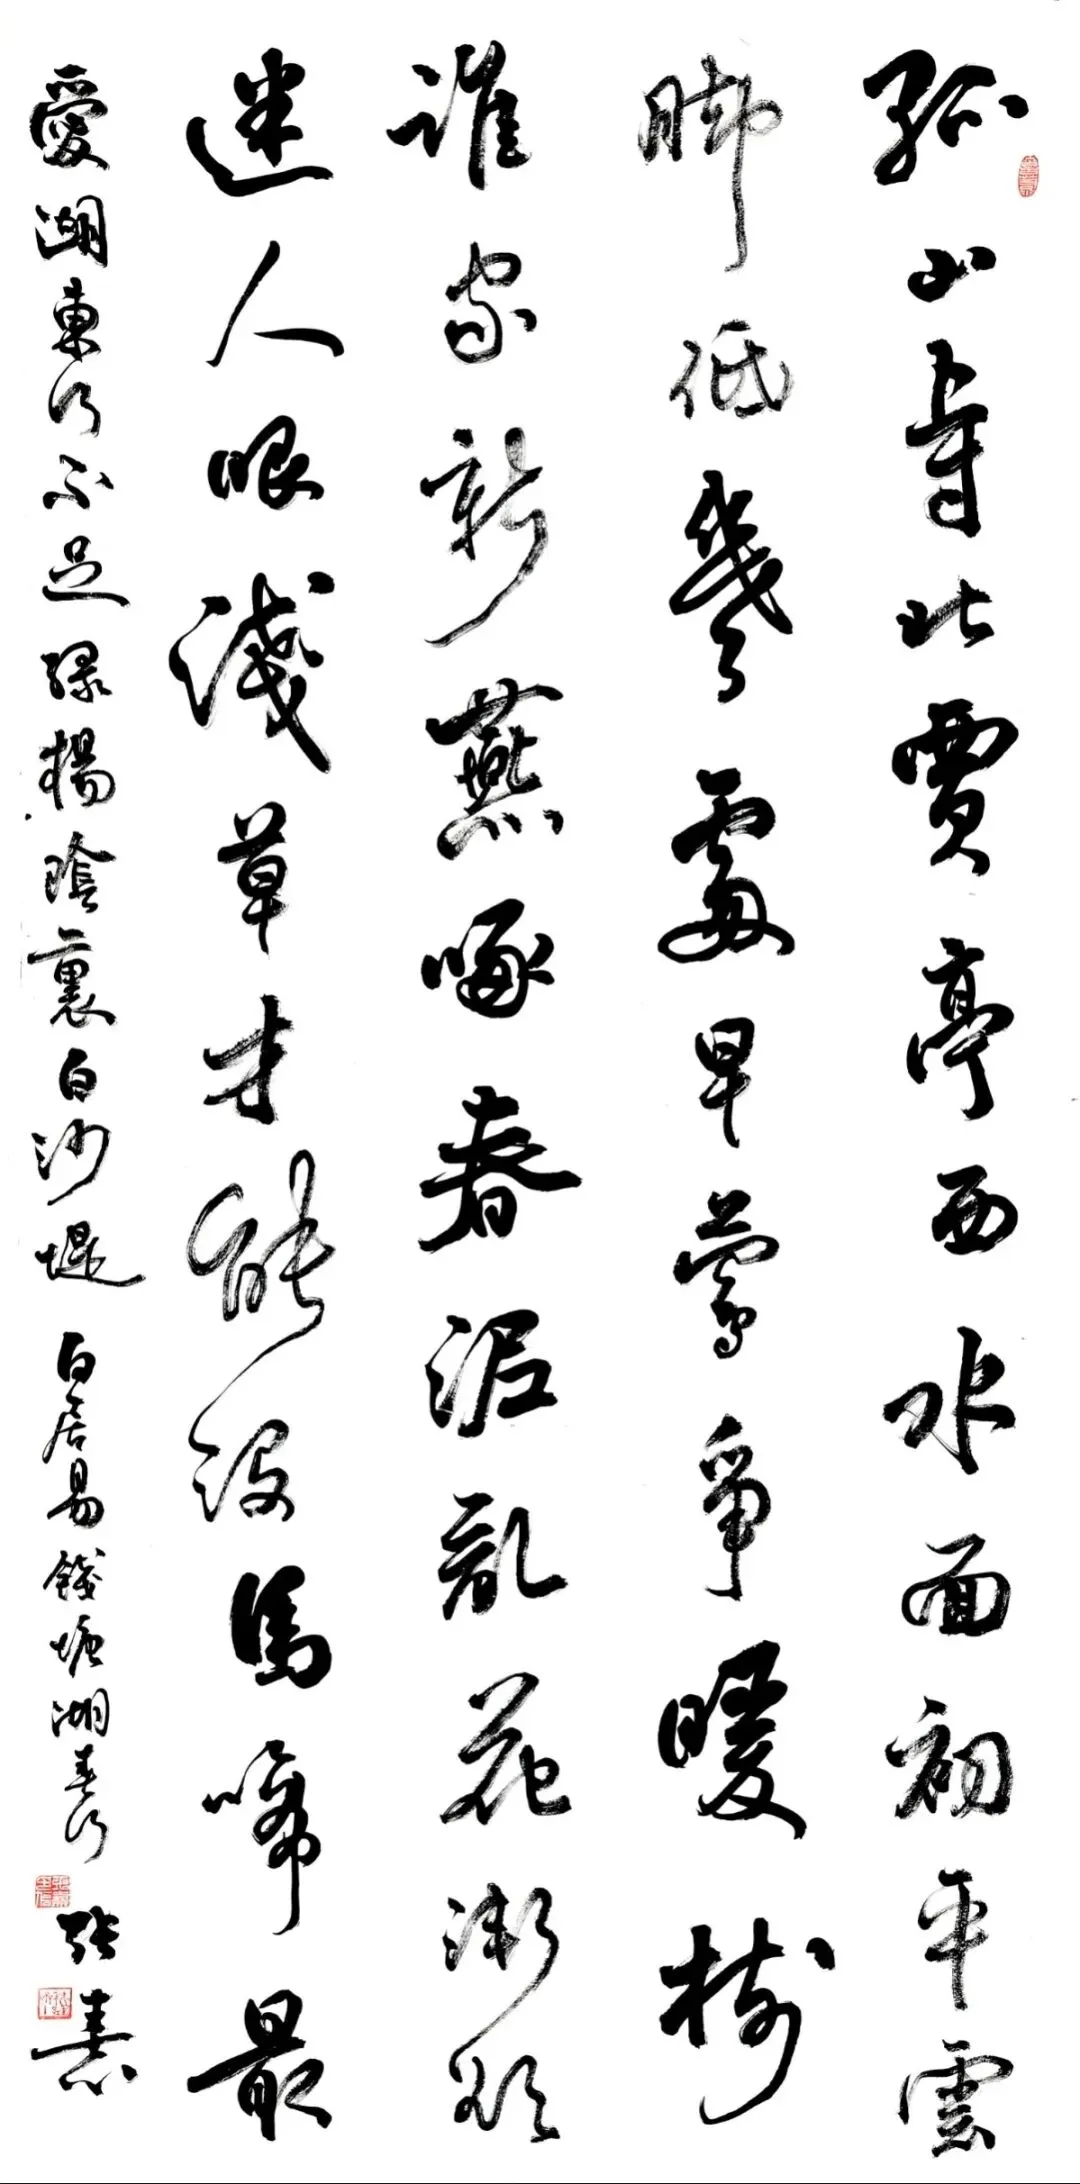 孤山寺北賈亭西水面初平雲
脚低幾處早鶯爭暖樹
誰家新燕啄春泥亂花漸欲
迷人眼淺草才能没馬啼最
愛湖東行不足緑楊陰裏白沙堤 白居易錢塘湖春行 張